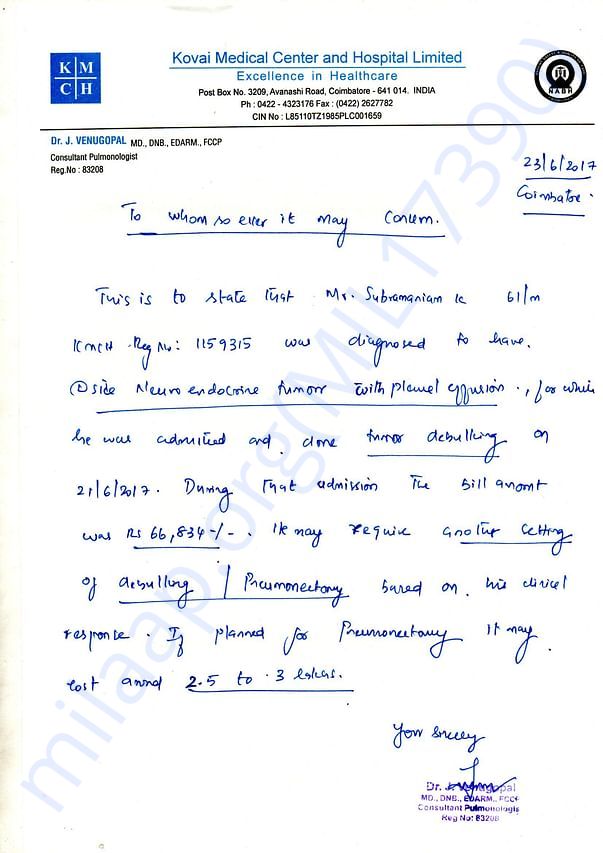 K M
C H
Kovai Medical Center and Hospital Limited
Excellence in Healthcare
Post Box No. 3209, Avanashi Road, Coimbatore - 641 014. INDIA
Ph : 0422 - 4323176 Fax : (0422) 2627782
CIN No : L85110TZ1985PLC001659
NABH
Dr. J. VENUGOPAL MD., DNB., EDARM., FCCP
Consultant Pulmonologist
Reg.No : 83208
23/6/2017
Coimbatore.
To whom so ever it may Concern.
This is to state that Mr. Subramaniam K 61/m
KMCH Reg No: 1159315 was diagnosed to have.
side Neuro endocrine tumor with pleural effusion., for which
he was admitted and done tumor debulking on
21/6/2017. During that admission the bill amont
was Rs 66,834/-. He may require another setting
of debulking / Pneumonectomy based on his clinical
response. If planned for Pneumonectomy it may
cost around 2.5 to 3 lakhs.
Your sincerely
Dr. J. Venugopal
MD., DNB., EDARM., FCCP
Consultant Pulmonologist
Reg No: 83208
milaap.org(MIL17390)